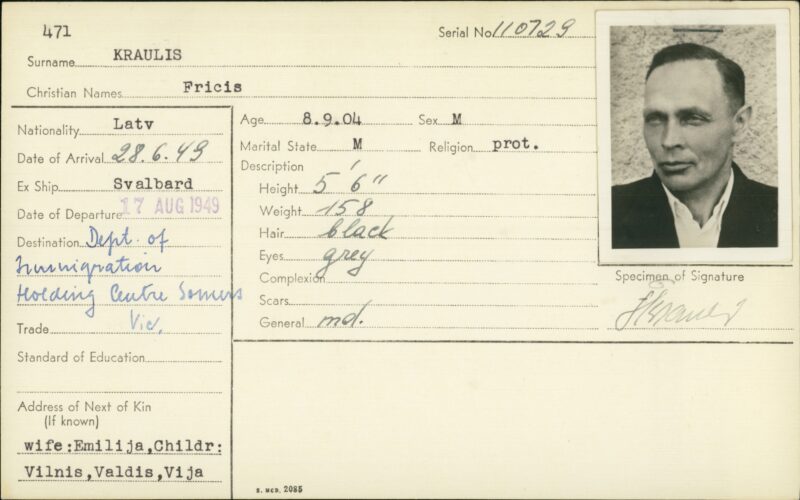 471
Serial No. 110729
Surname KRAULIS
Christian Names Fricis
Nationality Latv
Date of Arrival 28.6.49
Ex Ship Svalbard
Date of Departure 17 AUG 1949
Destination Dept. of
Immigration
Holding Centre Somers
Vic.
Trade
Standard of Education
Address of Next of Kin
(If known)
wife:Emilija,Childr:
Vilnis,Valdis,Vija
Age 8.9.04 Sex M
Marital State M Religion prot.
Description
Height 5' 6"
Weight 158
Hair black
Eyes grey
Complexion
Scars
General md.
Specimen of Signature
S. MCD. 2085